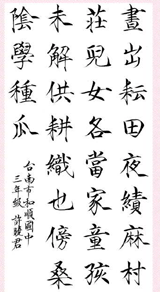 晝出耘田夜績麻村
莊兒女各當家童孩
未解供耕織也傍桑
陰學種瓜
台南市和順國中
三年級 許君